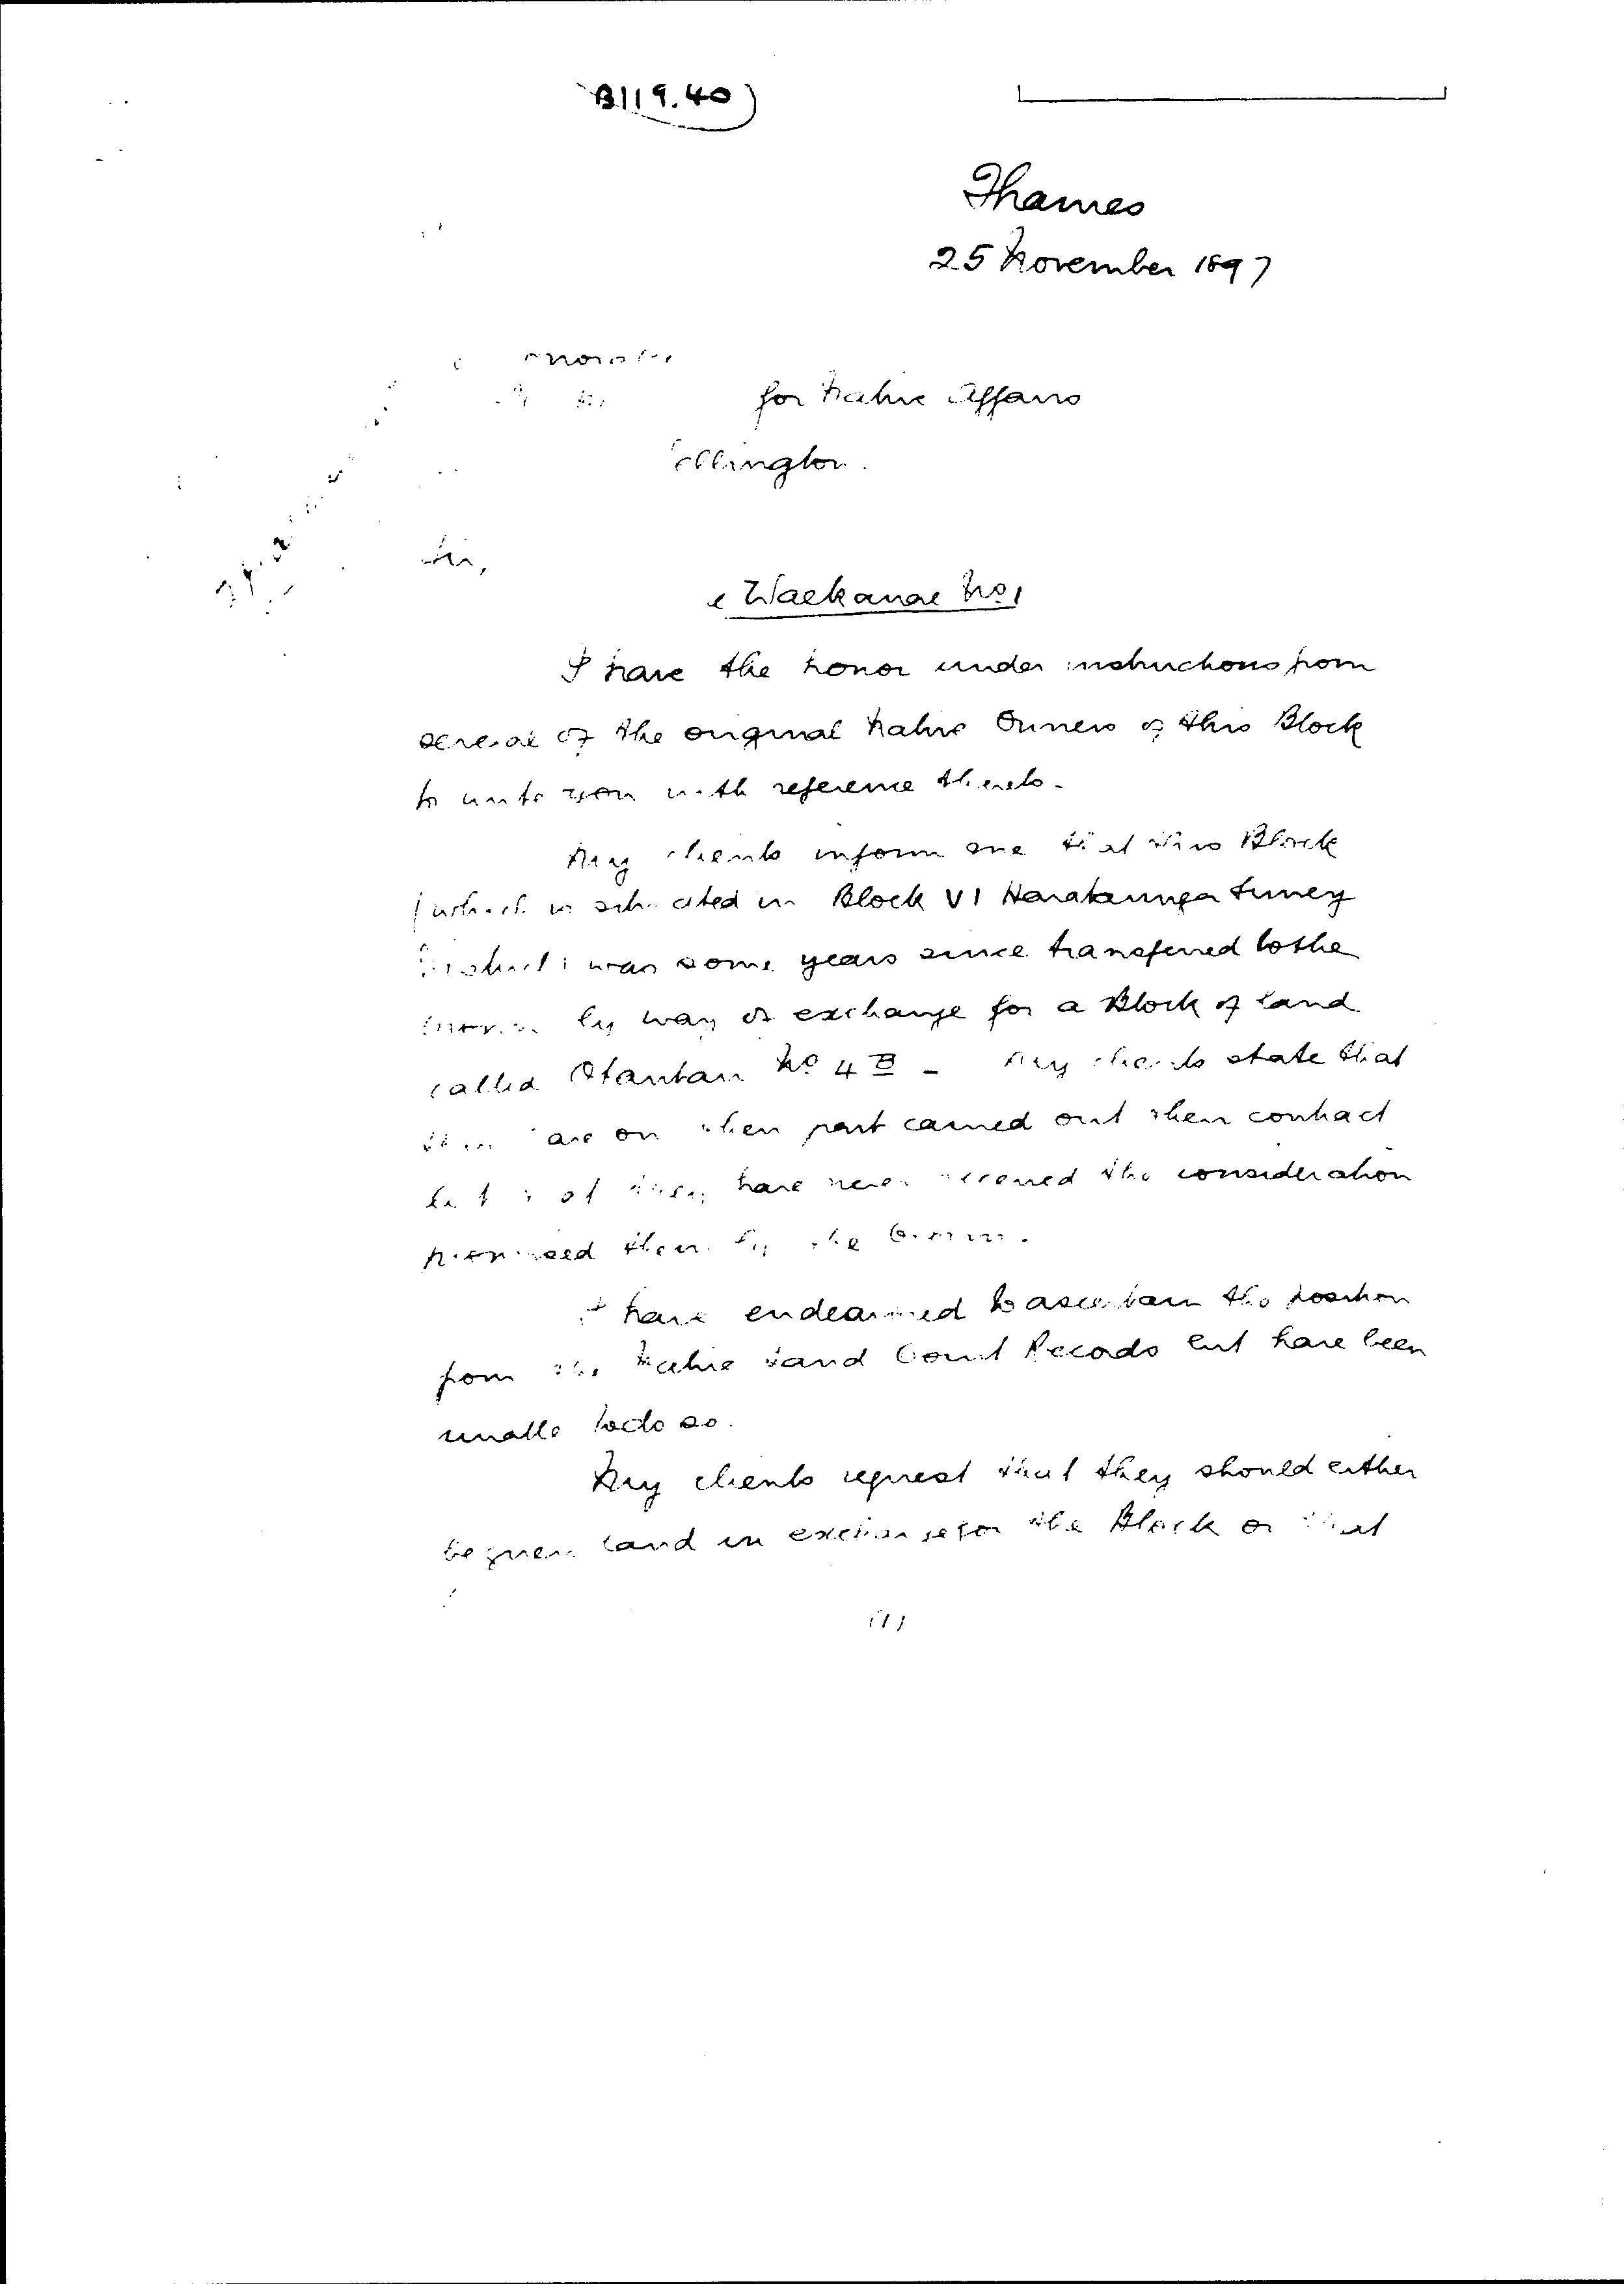 B119.40)
Thames
25 November 1897
for Native Affairs
Sir,
Waekanae No 1
I have the honor under instructions from
several of the original Native Owners of this Block
to write you with reference thereto -
My clients inform me that this Block
(which is situated in Block VI Harataunga Survey
District) was some years since transferred to the
Crown by way of exchange for a Block of land
called Otautau No 4B - My clients state that
on their part carried out their contract
but that they have never received the consideration
promised them by the Crown.
I have endeavoured to ascertain the position
from the Native Land Court Records but have been
unable to do so.
My clients request that they should either
be given land in exchange for the Block or that
(1)